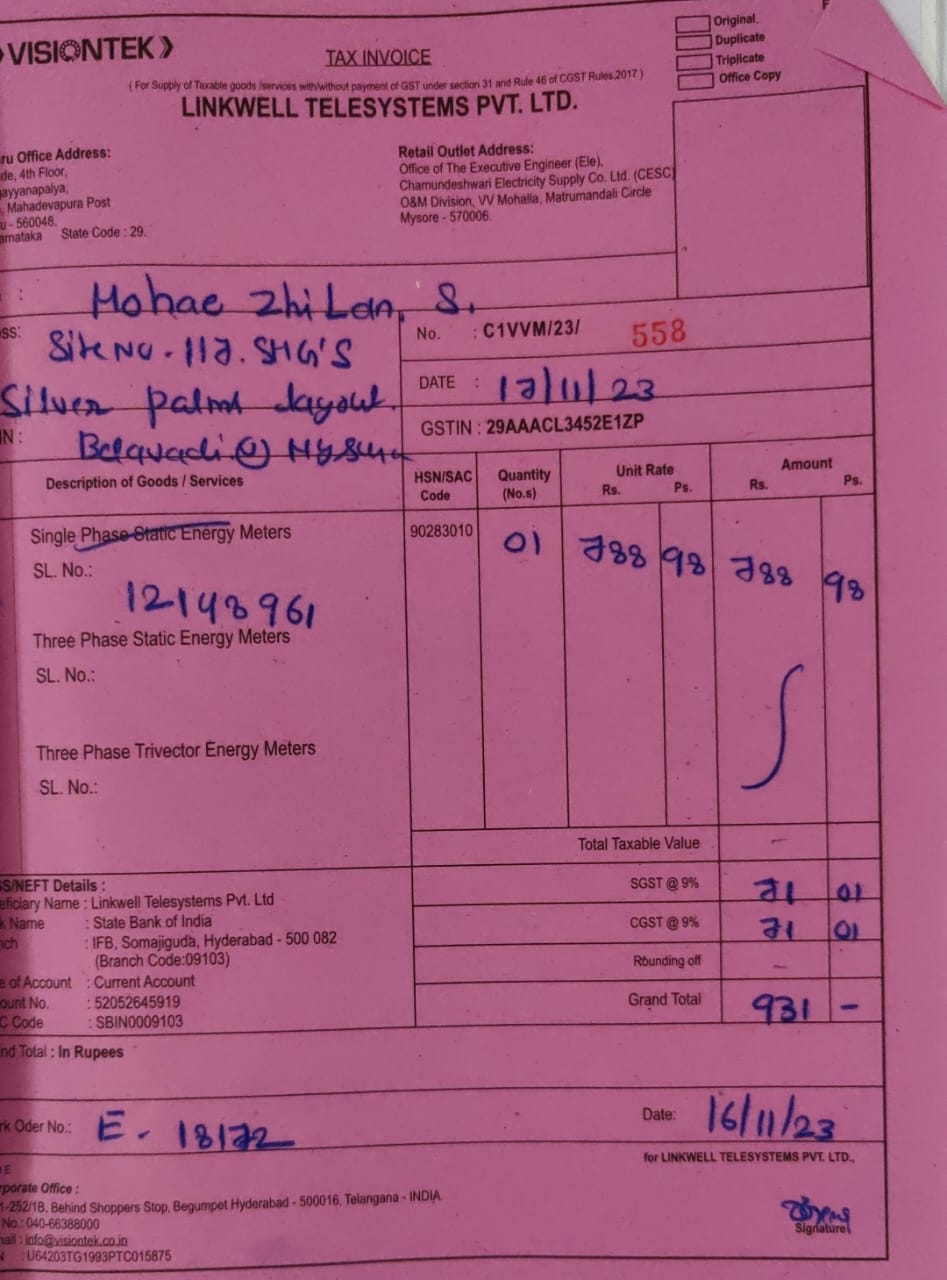 VISIONTEK
TAX INVOICE
Original.
Duplicate
Triplicate
Office Copy
( For Supply of Taxable goods /services with/without payment of GST under section 31 and Rule 46 of CGST Rules.2017 )
LINKWELL TELESYSTEMS PVT. LTD.
ru Office Address:
de, 4th Floor,
ayyanapalya,
, Mahadevapura Post
u - 560048.
arnataka State Code : 29.
Retail Outlet Address:
Office of The Executive Engineer (Ele),
Chamundeshwari Electricity Supply Co. Ltd. (CESC)
O&M Division, VV Mohalla, Matrumandali Circle
Mysore - 570006.
: Mohae Zhi Lan, S.
ss: Site No - 117. SHG'S
Silver palms layout.
IN : Belavadi @ Mysuru
No. : C1VVM/23/ 558
DATE : 17/11/23
GSTIN : 29AAACL3452E1ZP
Description of Goods / Services HSN/SAC Code Quantity (No.s) Unit Rate Rs. Ps. Amount Rs. Ps.
Single Phase Static Energy Meters 90283010 01 788 98 788 98
SL. No.:
12148961
Three Phase Static Energy Meters
SL. No.:
Three Phase Trivector Energy Meters
SL. No.:
Total Taxable Value -
SGST @ 9% 71 01
CGST @ 9% 71 01
Rounding off -
Grand Total 931 -
S/NEFT Details :
eficiary Name : Linkwell Telesystems Pvt. Ltd
k Name : State Bank of India
nch : IFB, Somajiguda, Hyderabad - 500 082
(Branch Code:09103)
e of Account : Current Account
ount No. : 52052645919
C Code : SBIN0009103
nd Total : In Rupees
rk Oder No.: E - 18172
Date: 16/11/23
for LINKWELL TELESYSTEMS PVT. LTD.,
E
rporate Office :
1-252/1B, Behind Shoppers Stop, Begumpet Hyderabad - 500016, Telangana - INDIA
No.: 040-66388000
ail : info@visiontek.co.in
N : U64203TG1993PTC015875
Signature